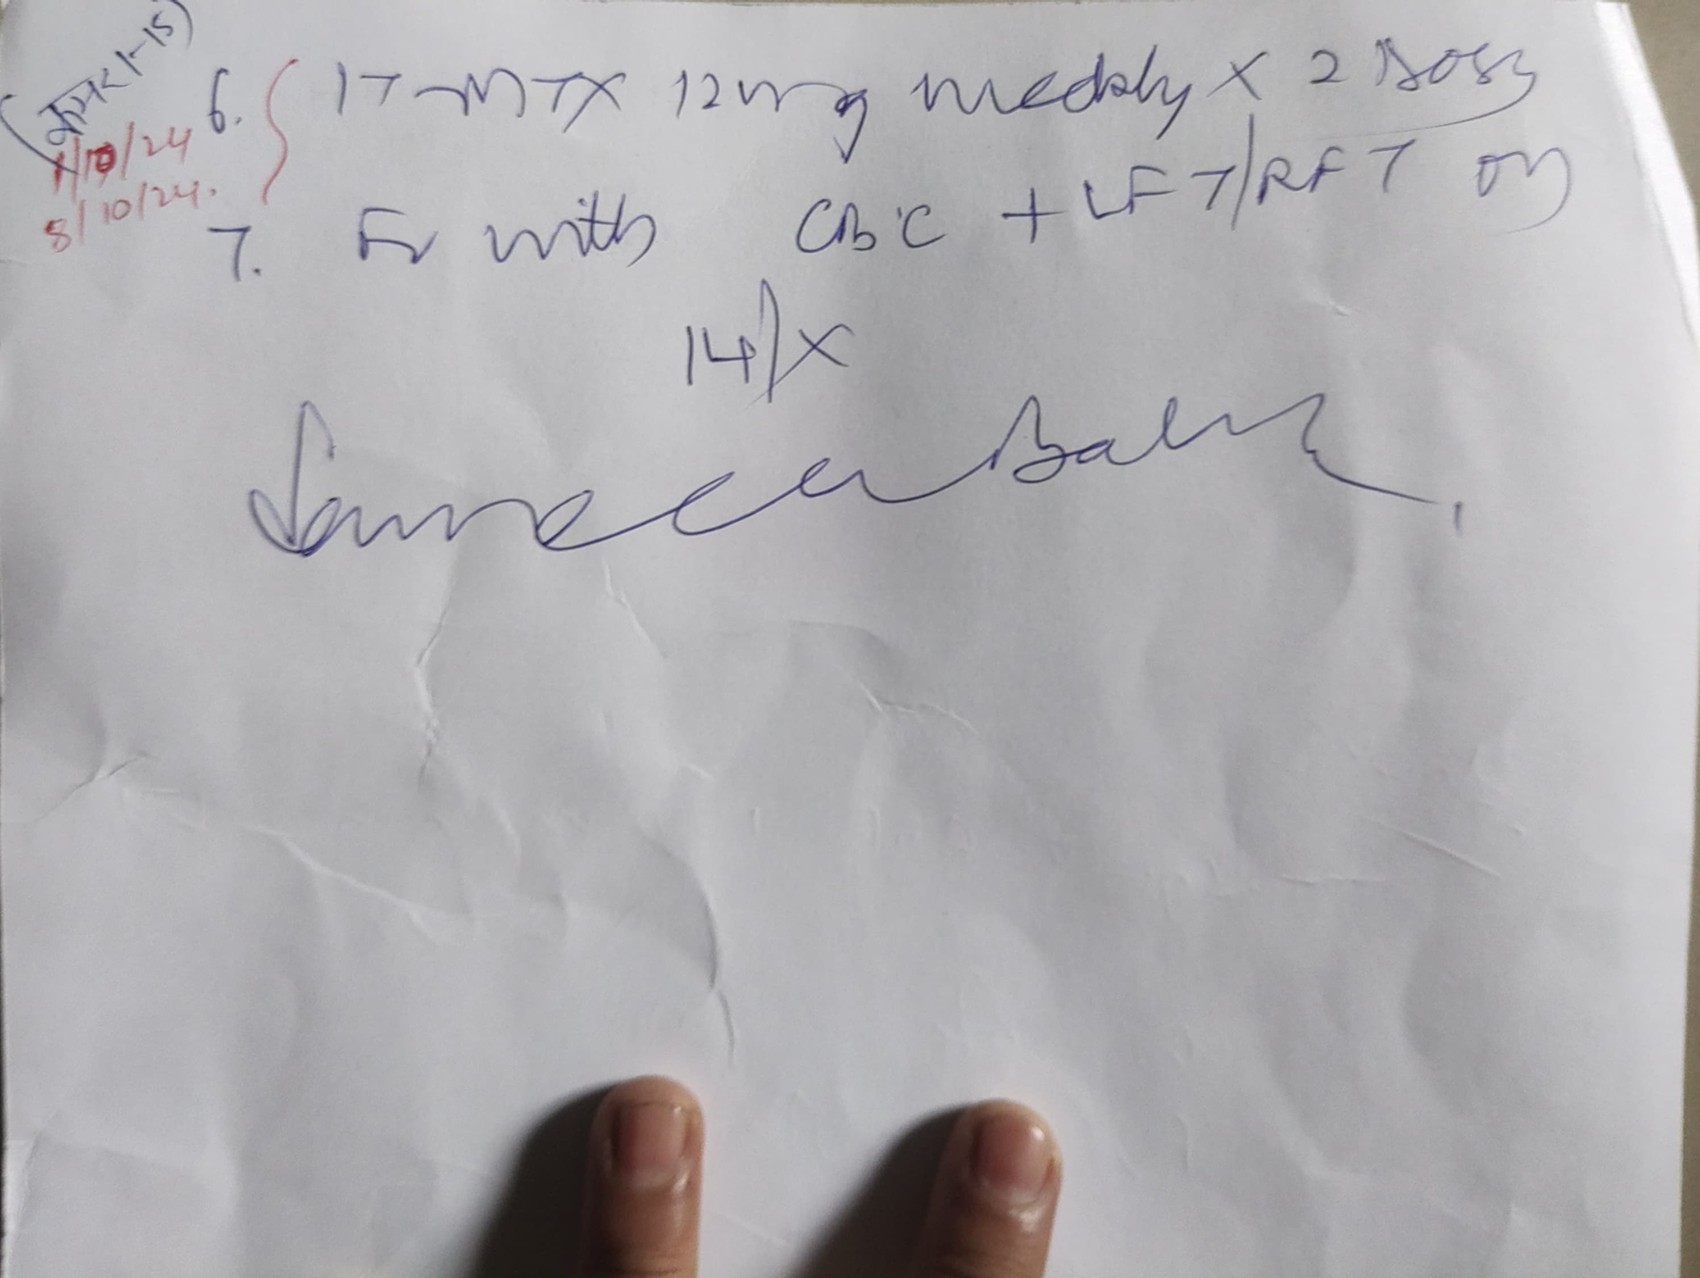 1-15)
6. { IT-MTX 12mg weekly X 2 Doses
1/10/24
8/10/24.
7. Fu with CBC + LFT/RFT on
14/X
Sameer Bakhshi